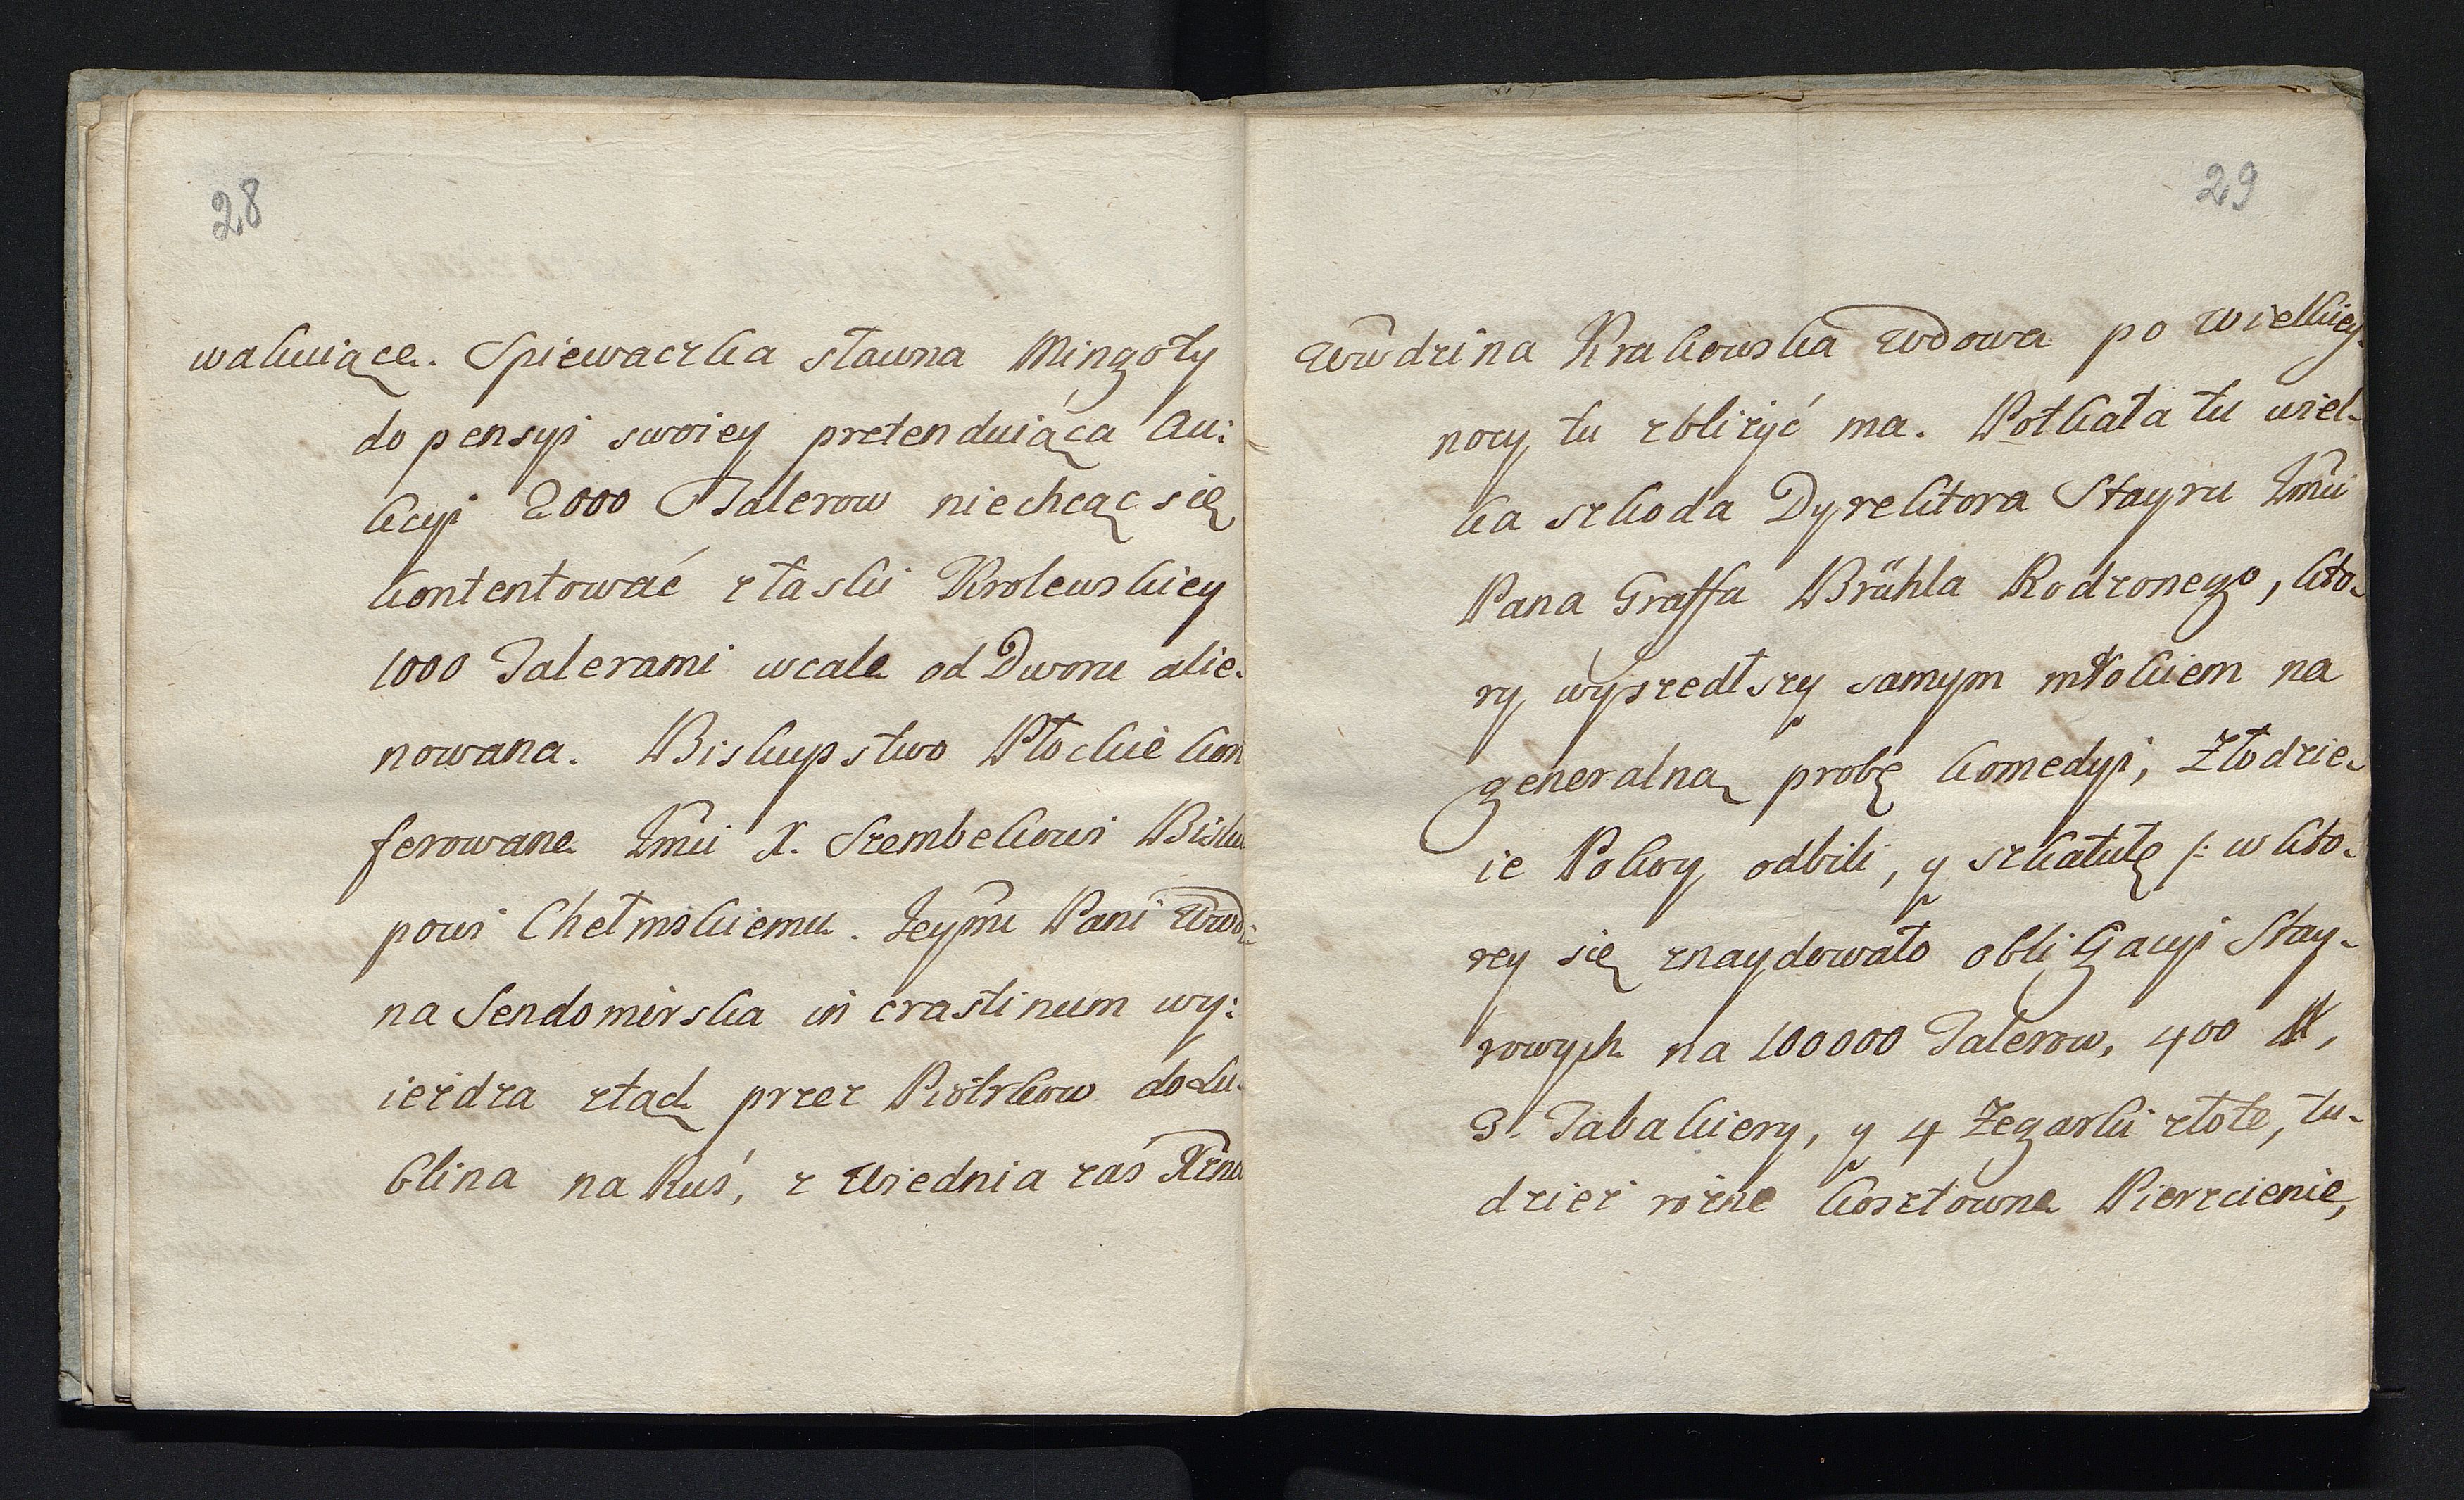 28
wakuiące. Spiewaczka sławna Mingoty
do pensyi swoiey pretenduiąca Au:
kcyi 2000 Talerow niechcąc się
kontentować z łaski Krolewskiey
1000 Talerami wcale od Dworu alie-
nowana. Biskupstwo Płockie kon
ferowane Jmci X. Szembekowi Bisku
powi Chełmskiemu. Jeymc Pani Wwdzi
na Sendomirska in crastinum wy:
ieżdza ztąd przez Piotrkow do Lu-
blina na Ruś, z Wiednia zaś Xżna
29
Wwdzina Krakowska Wdowa po Wielkiey
nocy tu zbliżyć ma. Potkała tu wiel-
ka szkoda Dyrektora Stayru Jmci
Pana Graffa Brühla Rodzonego, kto-
ry wyszedłszy samym mrokiem na
generalną probę komedyi, Złodzie-
ie Pokoy odbili, y szkatułę /: w kto-
rey się znaydowało obligacyi Stay-
rowych na 100000 Talerow, 400 #,
3. Tabakiery, y 4 Zegarki złote, tu-
dzież rożne kosztowne Pierzcienie,